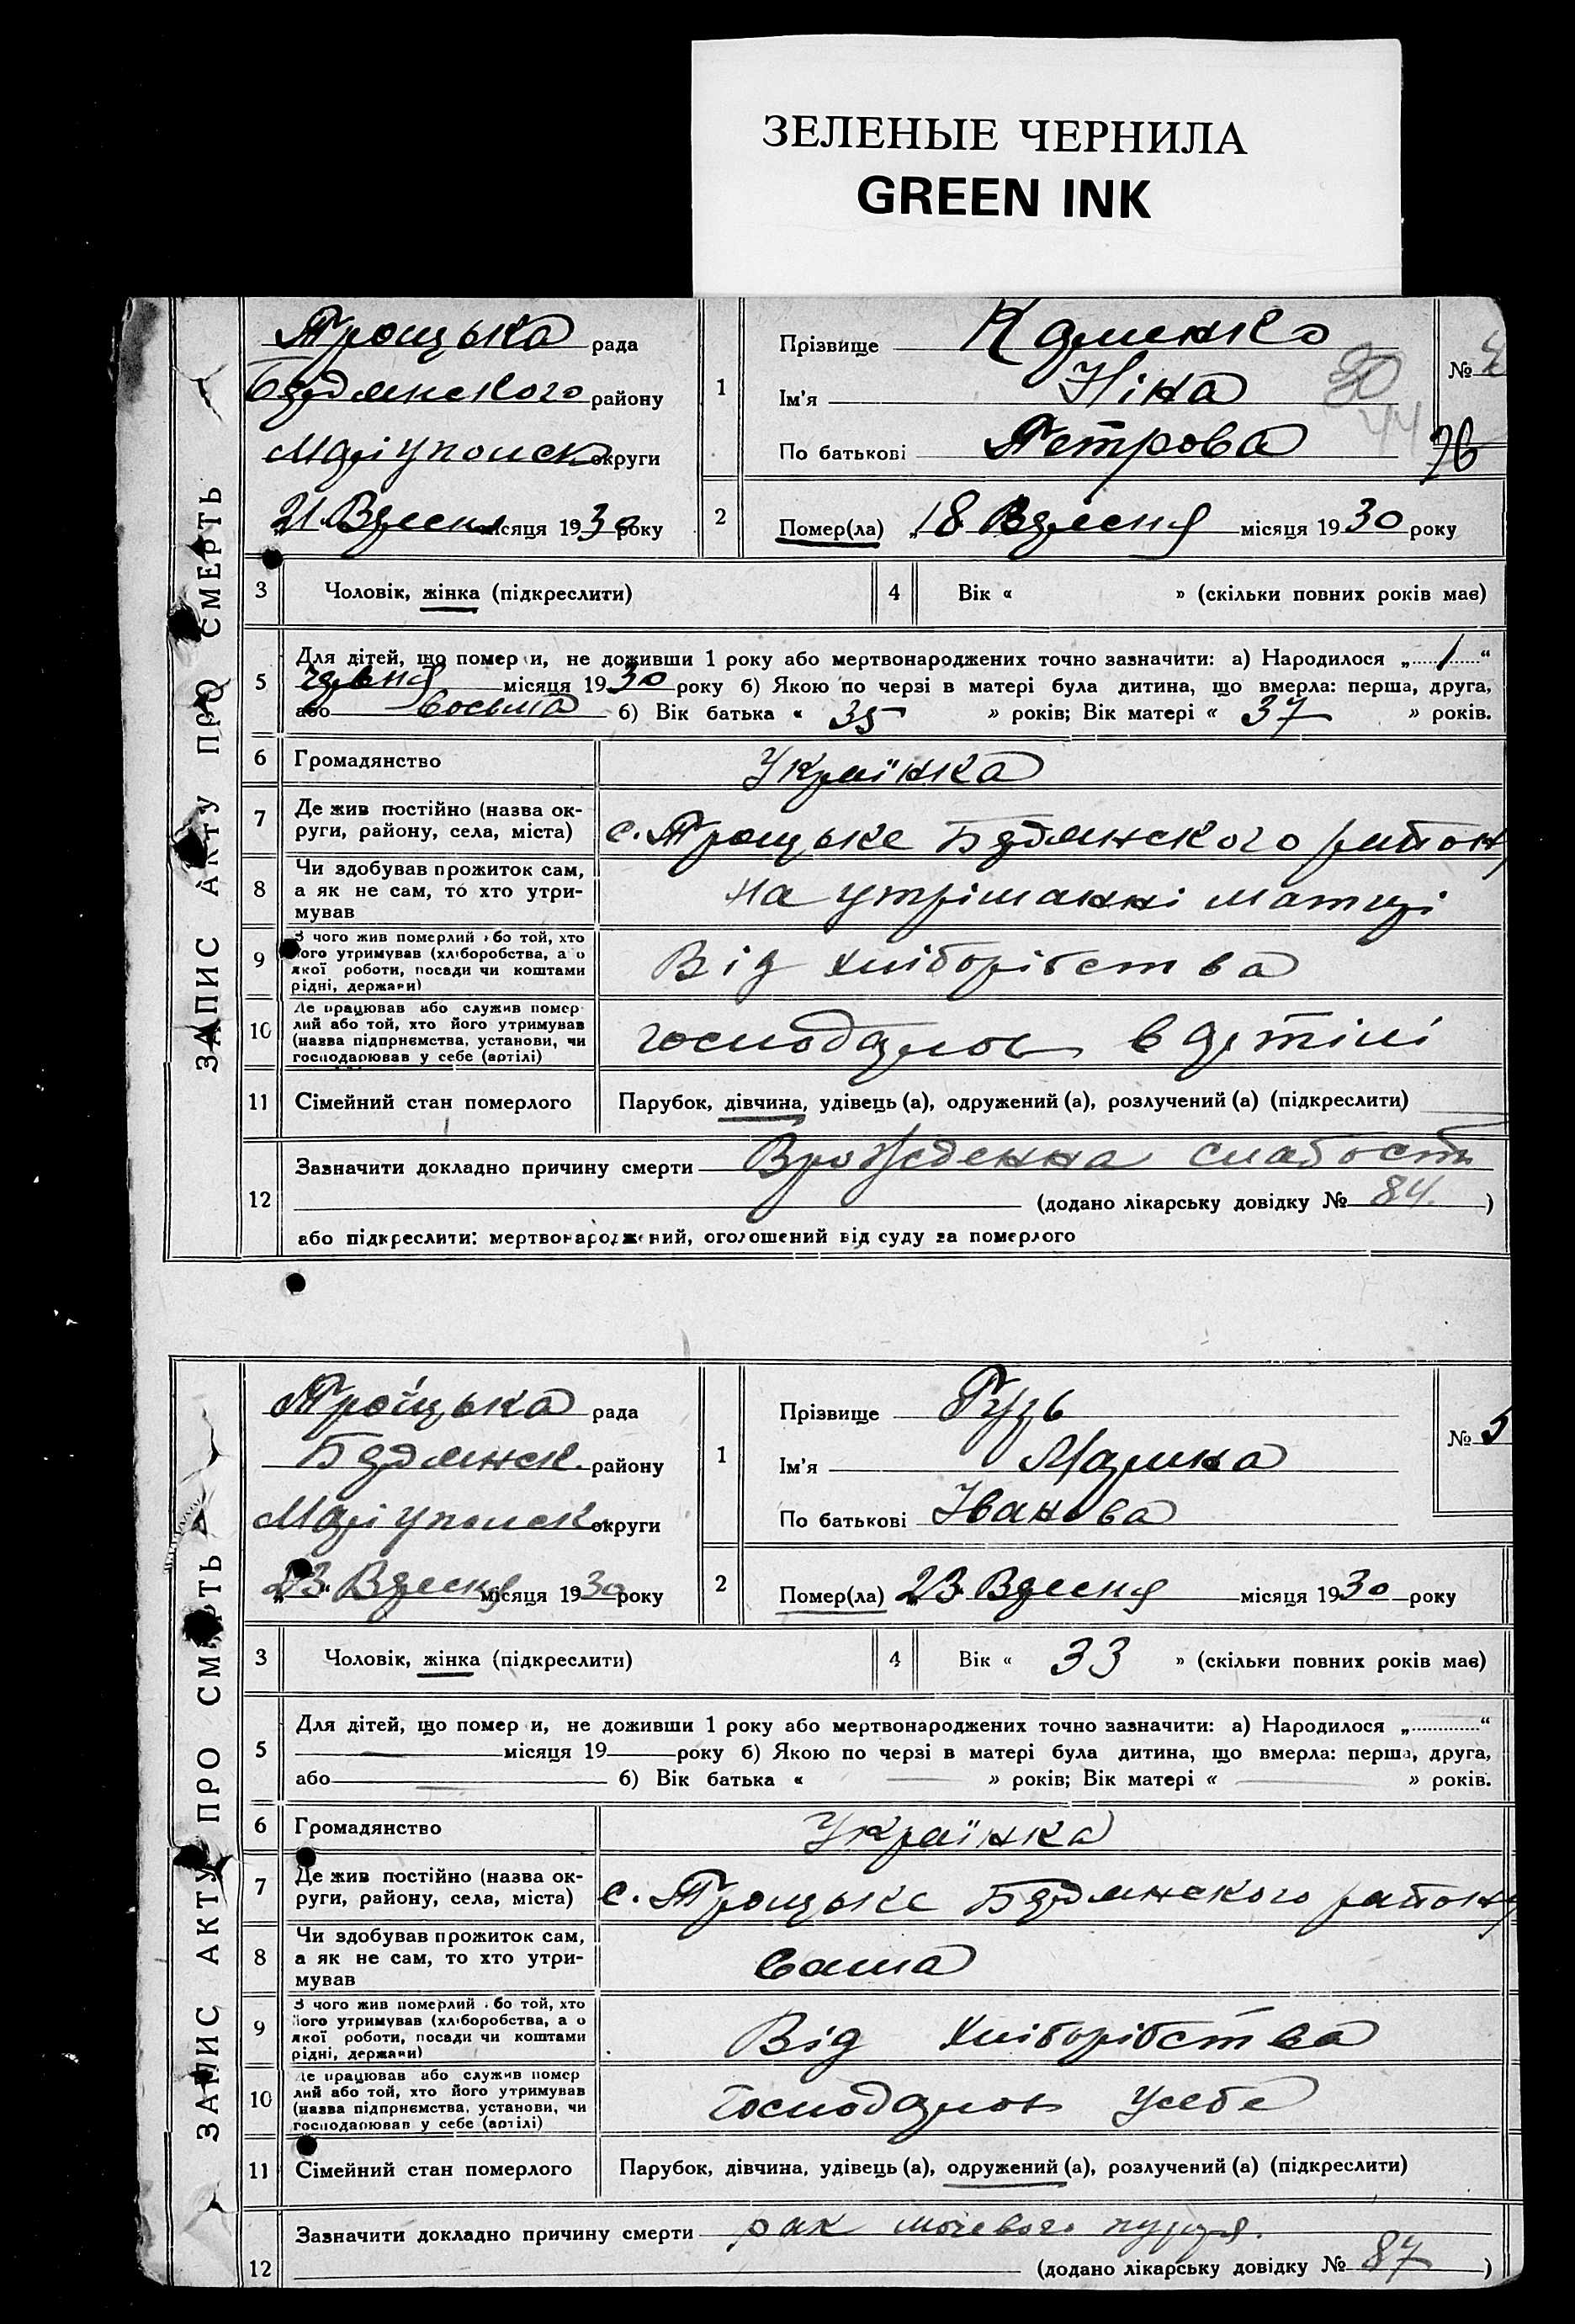 ЗЕЛЕНЫЕ ЧЕРНИЛА
GREEN INK
ЗАПИС АКТУ ПРО СМЕРТЬ
Троцька рада
Бердянского району
Маріупольск округи
21 Вересня місяця 1930 року
1
Прізвище
Ім'я Ніна
По батькові Петрова
№
2
Помер(ла) „18 Вересня місяця 1930 року
3 Чоловік, жінка (підкреслити)
4 Вік « » (скільки повних років має)
5 Для дітей, що померли, не доживши 1 року або мертвонароджених точно зазначити: а) Народилося „ 1 “
місяця 1930 року б) Якою по черзі в матері була дитина, що вмерла: перша, друга,
або восьма б) Вік батька « 35 » років; Вік матері « 37 » років.
6 Громадянство Українка
7 Де жив постійно (назва ок-
руги, району, села, міста) с. Троцьке Бердянского району
8 Чи здобував прожиток сам,
а як не сам, то хто утри-
мував на утріманні матері
9 З чого жив померлий або той, хто
його утримував (хліборобства, або
якої роботи, посади чи коштами
рідні, держави) Від хліборібства
10 Де працював або служив помер-
лий або той, хто його утримував
(назва підприємства, установи, чи
господарював у себе (артілі) господарює в артілі
11 Сімейний стан померлого Парубок, дівчина, удівець (а), одружений (а), розлучений (а) (підкреслити)
12 Зазначити докладно причину смерти Врожденна слабость
(додано лікарську довідку № 84. )
або підкреслити: мертвонароджений, оголошений від суду за померлого
ЗАПИС АКТУ ПРО СМЕРТЬ
Троїцька рада
Бердянск. району
Маріупольск. округи
„23“ Вересня місяця 1930 року
1
Прізвище Гузь
Ім'я Марина
По батькові Іванова
№ 5
2
Помер(ла) „23 Вересня місяця 1930 року
3 Чоловік, жінка (підкреслити)
4 Вік « 33 » (скільки повних років має)
5 Для дітей, що померли, не доживши 1 року або мертвонароджених точно зазначити: а) Народилося „ “
місяця 19 року б) Якою по черзі в матері була дитина, що вмерла: перша, друга,
або б) Вік батька « » років; Вік матері « » років.
6 Громадянство Українка
7 Де жив постійно (назва ок-
руги, району, села, міста) с. Троцьке Бердянского району
8 Чи здобував прожиток сам,
а як не сам, то хто утри-
мував сама
9 З чого жив померлий або той, хто
його утримував (хліборобства, або
якої роботи, посади чи коштами
рідні, держави) Від хліборібства
10 Де працював або служив помер-
лий або той, хто його утримував
(назва підприємства, установи, чи
господарював у себе (артілі) господарює усебе
11 Сімейний стан померлого Парубок, дівчина, удівець (а), одружений (а), розлучений (а) (підкреслити)
12 Зазначити докладно причину смерти рак мочевого
(додано лікарську довідку № 87 )